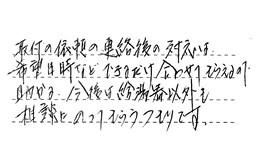 取付の依頼の連絡後の対応は
希望日時などできるだけ合わせてもらえるので
助かる。今後は給湯器以外も
相談にのってもらうつもりです。